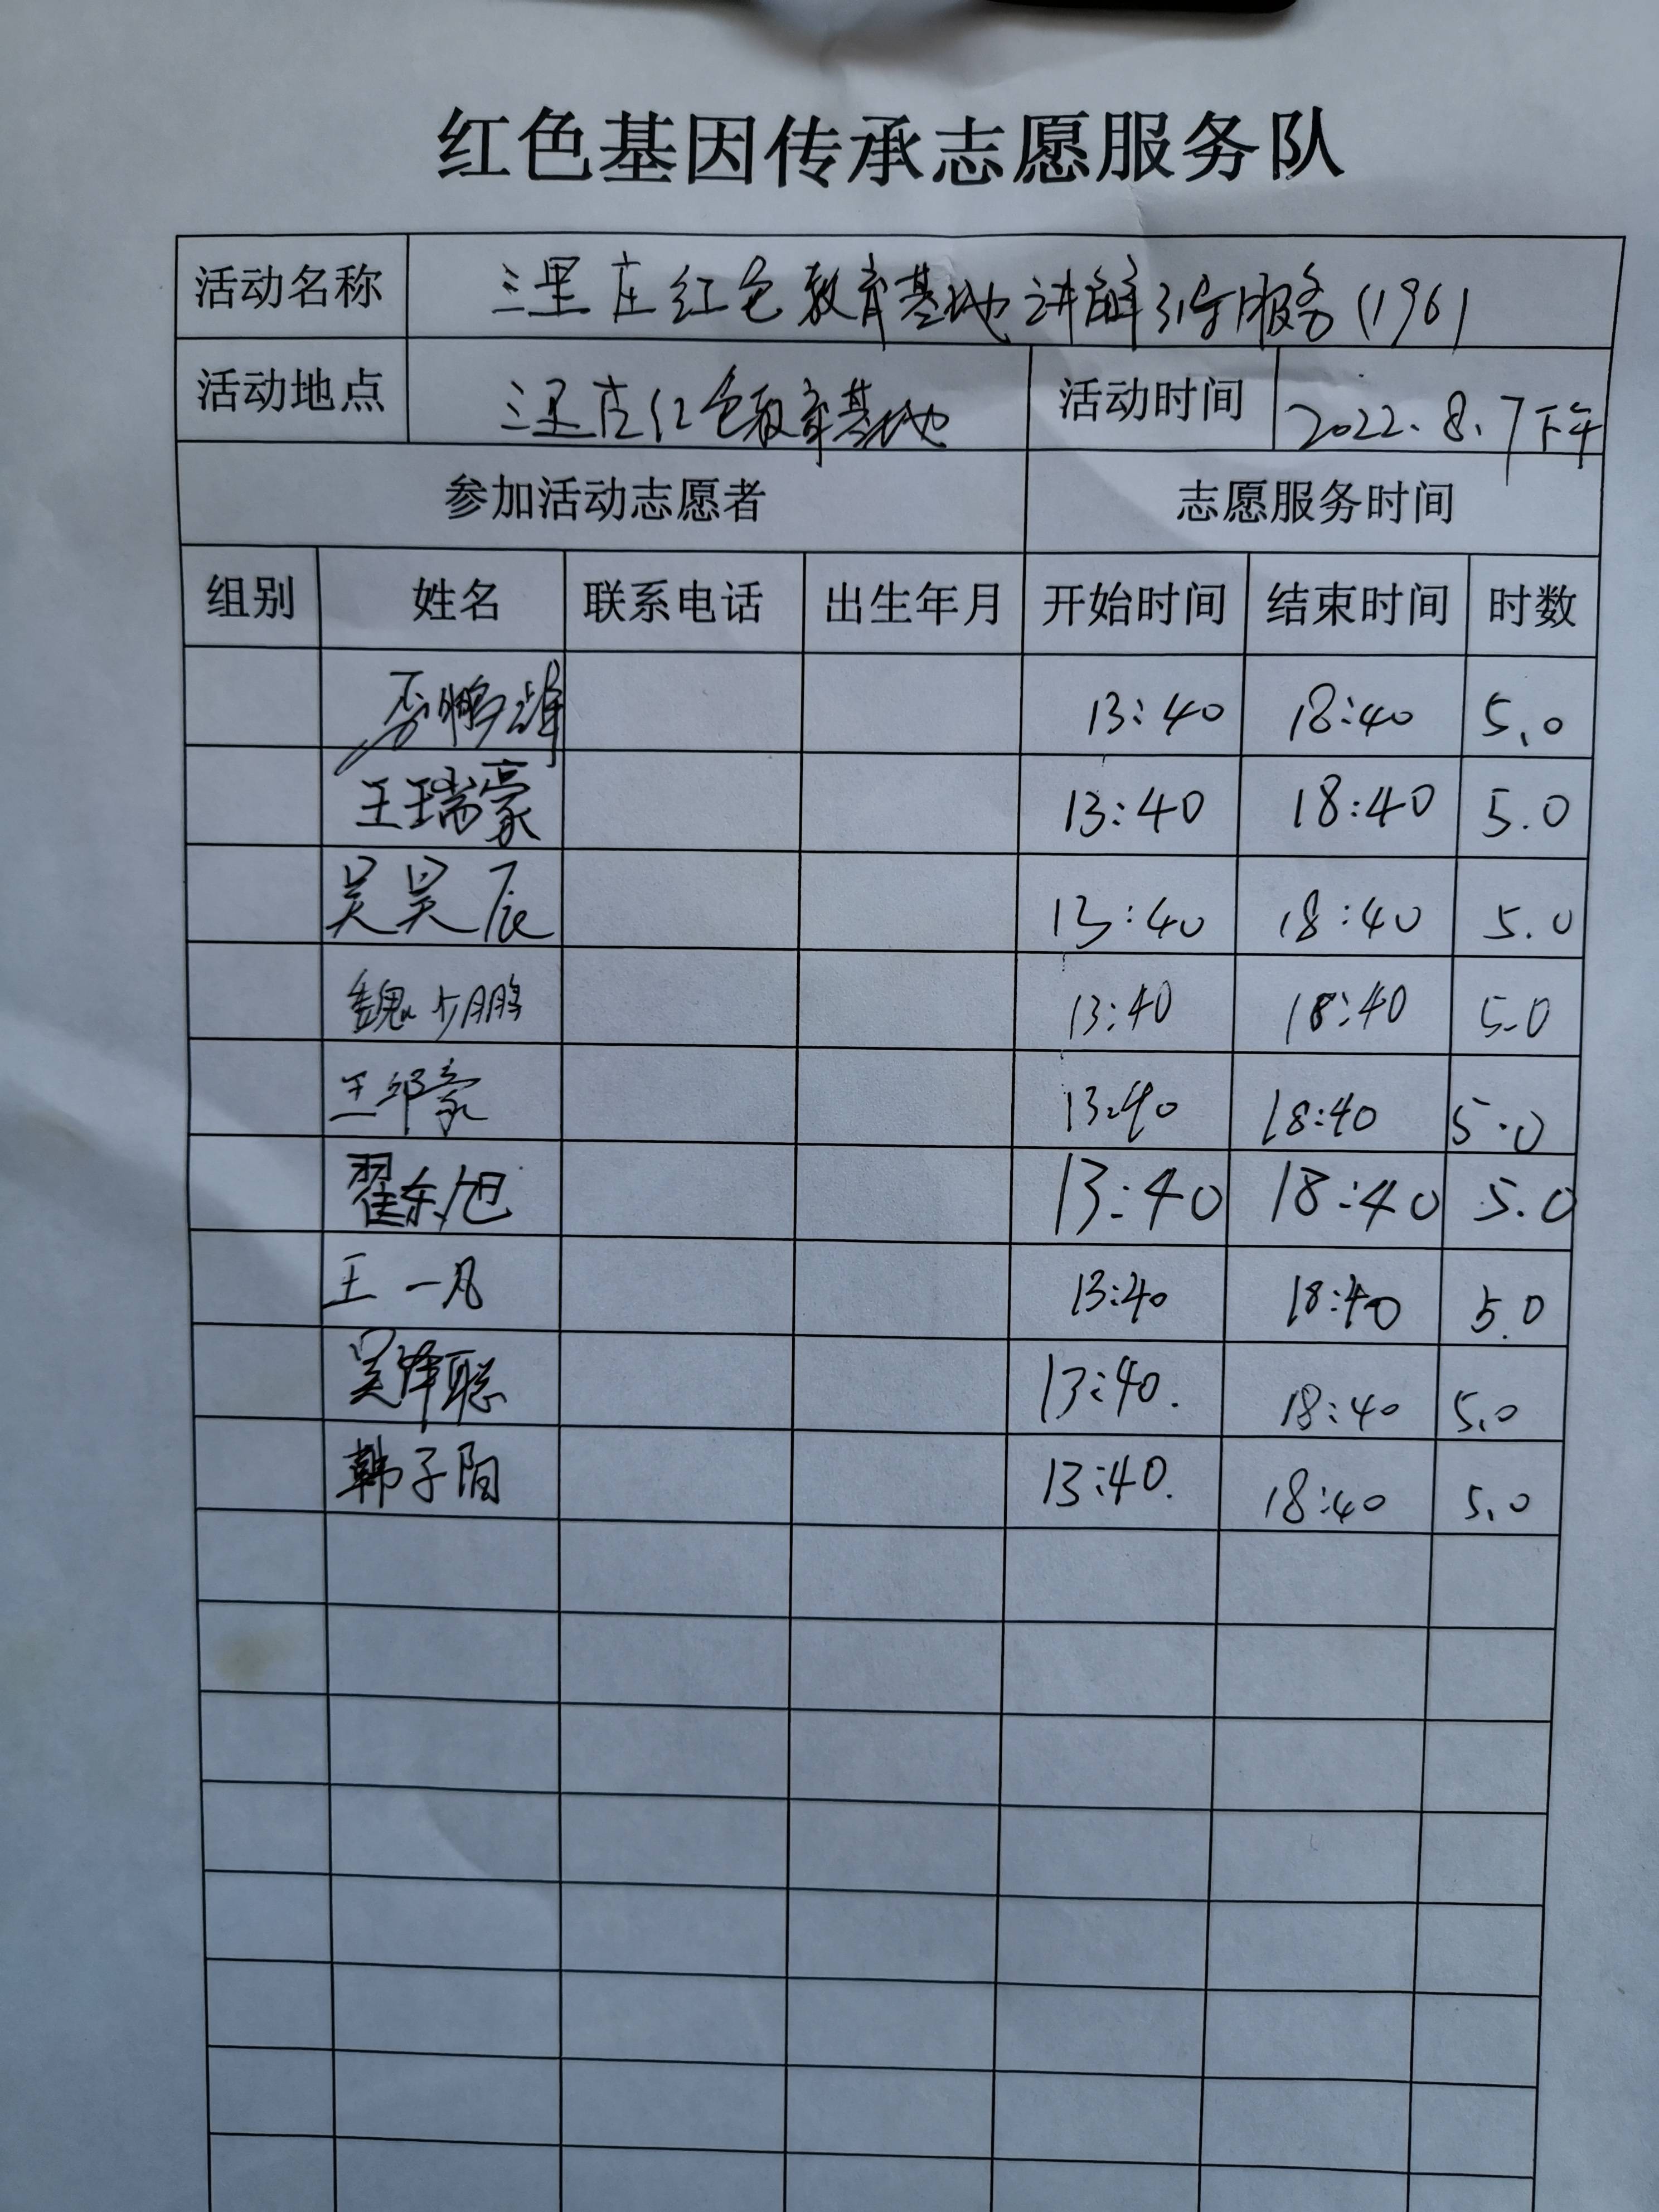 红色基因传承志愿服务队
活动名称 三里庄红色教育基地讲解引导服务(196)
活动地点 三里庄红色教育基地 活动时间 2022.8.7下午
参加活动志愿者 志愿服务时间
组别 姓名 联系电话 出生年月 开始时间 结束时间 时数
李鹏 13:40 18:40 5.0
王瑞豪 13:40 18:40 5.0
吴昊辰 13:40 18:40 5.0
魏少鹏 13:40 18:40 5.0
王邵豪 13:40 18:40 5.0
翟东旭 13:40 18:40 5.0
王一凡 13:40 18:40 5.0
吴泽聪 13:40. 18:40 5.0
韩子阳 13:40. 18:40 5.0